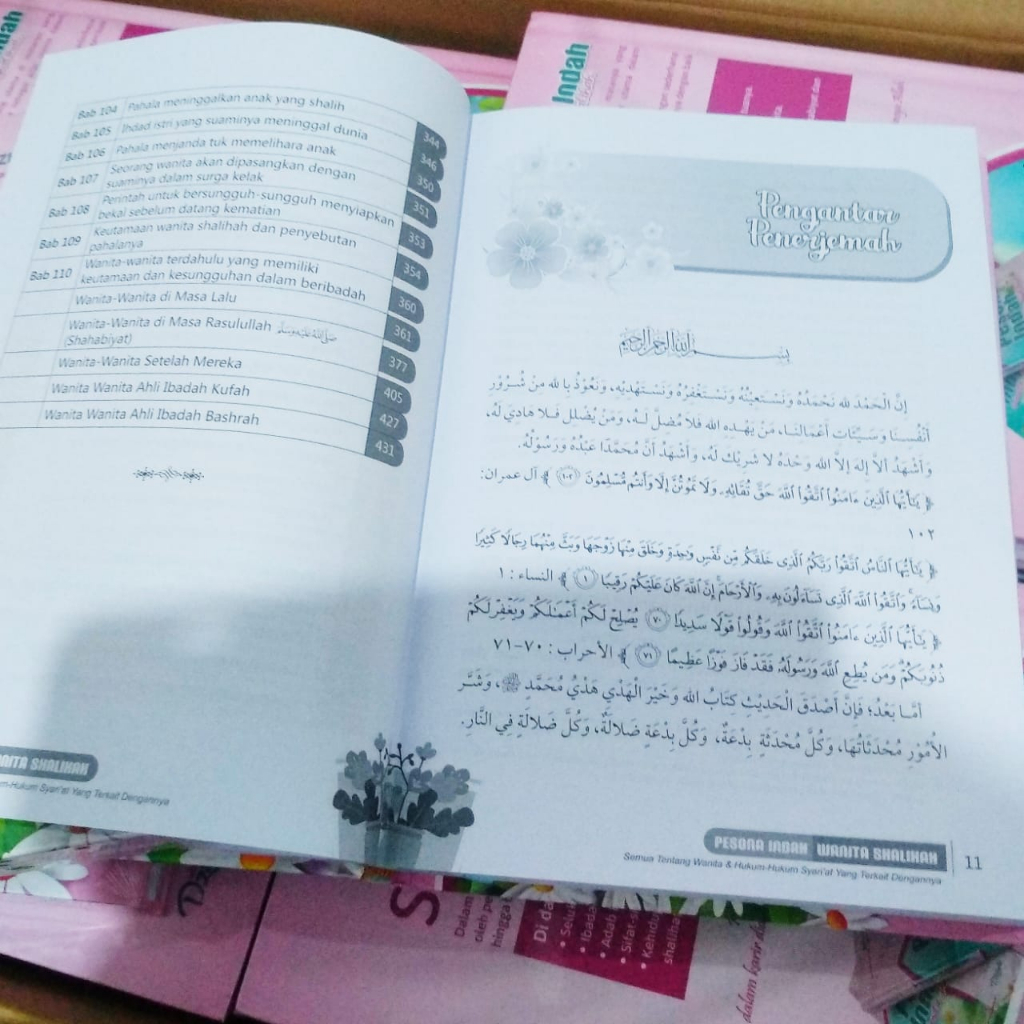 Bab 104 Pahala meninggalkan anak yang shalih 344
Bab 105 Ihdad istri yang suaminya meninggal dunia 346
Bab 106 Pahala menjanda tuk memelihara anak 350
Bab 107 Seorang wanita akan dipasangkan dengan
suaminya dalam surga kelak 351
Bab 108 Perintah untuk bersungguh-sungguh menyiapkan
bekal sebelum datang kematian 353
Bab 109 Keutamaan wanita shalihah dan penyebutan
pahalanya 354
Bab 110 Wanita-wanita terdahulu yang memiliki
keutamaan dan kesungguhan dalam beribadah 360
Wanita-Wanita di Masa Lalu 361
Wanita-Wanita di Masa Rasulullah ﷺ
(Shahabiyat) 377
Wanita-Wanita Setelah Mereka 405
Wanita Wanita Ahli Ibadah Kufah 427
Wanita Wanita Ahli Ibadah Bashrah 431
WANITA SHALIHAH
Hukum Syari'at Yang Terkait Dengannya
Pengantar
Penerjemah
بِسْمِ اللهِ الرَّحْمٰنِ الرَّحِيمِ
إِنَّ الْحَمْدَ لله نَحْمَدُهُ وَنَسْتَعِيْنُهُ وَنَسْتَغْفِرُهُ وَنَسْتَهْدِيْهِ، وَنَعُوْذُ بِالله مِنْ شُرُوْرِ
أَنْفُسِنَا وَسَيِّئَاتِ أَعْمَالِنَا، مَنْ يَهْدِهِ الله فَلَا مُضِلَّ لَهُ، وَمَنْ يُضْلِلْ فَلَا هَادِيَ لَهُ،
وَأَشْهَدُ أَلاَّ إِلهَ إِلاَّ الله وَحْدَهُ لا شَرِيْكَ لَهُ، وَأَشْهَدُ أَنَّ مُحَمَّدًا عَبْدُهُ وَرَسُوْلُهُ.
﴿ يَٰٓأَيُّهَا ٱلَّذِينَ ءَامَنُوا۟ ٱتَّقُوا۟ ٱللَّهَ حَقَّ تُقَاتِهِۦ وَلَا تَمُوتُنَّ إِلَّا وَأَنتُم مُّسْلِمُونَ ١٠٢ ﴾ آل عمران:
١٠٢
﴿ يَٰٓأَيُّهَا ٱلنَّاسُ ٱتَّقُوا۟ رَبَّكُمُ ٱلَّذِى خَلَقَكُم مِّن نَّفْسٍ وَٰحِدَةٍ وَخَلَقَ مِنْهَا زَوْجَهَا وَبَثَّ مِنْهُمَا رِجَالًا كَثِيرًا
وَنِسَآءً وَٱتَّقُوا۟ ٱللَّهَ ٱلَّذِى تَسَآءَلُونَ بِهِۦ وَٱلْأَرْحَامَ إِنَّ ٱللَّهَ كَانَ عَلَيْكُمْ رَقِيبًا ١ ﴾ النساء : ١
﴿ يَٰٓأَيُّهَا ٱلَّذِينَ ءَامَنُوا۟ ٱتَّقُوا۟ ٱللَّهَ وَقُولُوا۟ قَوْلًا سَدِيدًا ٧٠ يُصْلِحْ لَكُمْ أَعْمَٰلَكُمْ وَيَغْفِرْ لَكُمْ
ذُنُوبَكُمْ وَمَن يُطِعِ ٱللَّهَ وَرَسُولَهُۥ فَقَدْ فَازَ فَوْزًا عَظِيمًا ٧١ ﴾ الأحزاب : ٧٠-٧١
أمَّا بَعْدُ؛ فَإِنَّ أَصْدَقَ الْحَدِيْثِ كِتَابُ الله وَخَيْرَ الْهَدْيِ هَدْيُ مُحَمَّدٍ ﷺ، وَشَرَّ
الأُمُوْرِ مُحْدَثَاتُهَا، وَكُلَّ مُحْدَثَةٍ بِدْعَةٌ، وَكُلَّ بِدْعَةٍ ضَلالَةٌ، وَكُلَّ ضَلالَةٍ فِي النَّارِ.
PESONA INDAH WANITA SHALIHAH 11
Semua Tentang Wanita & Hukum-Hukum Syari'at Yang Terkait Dengannya
Indah
Dalam
oleh
hingga
Di da
• Selu
• Ibada
• Adab
• Sifat-s
• Kehidu
shaliha
dalam karir